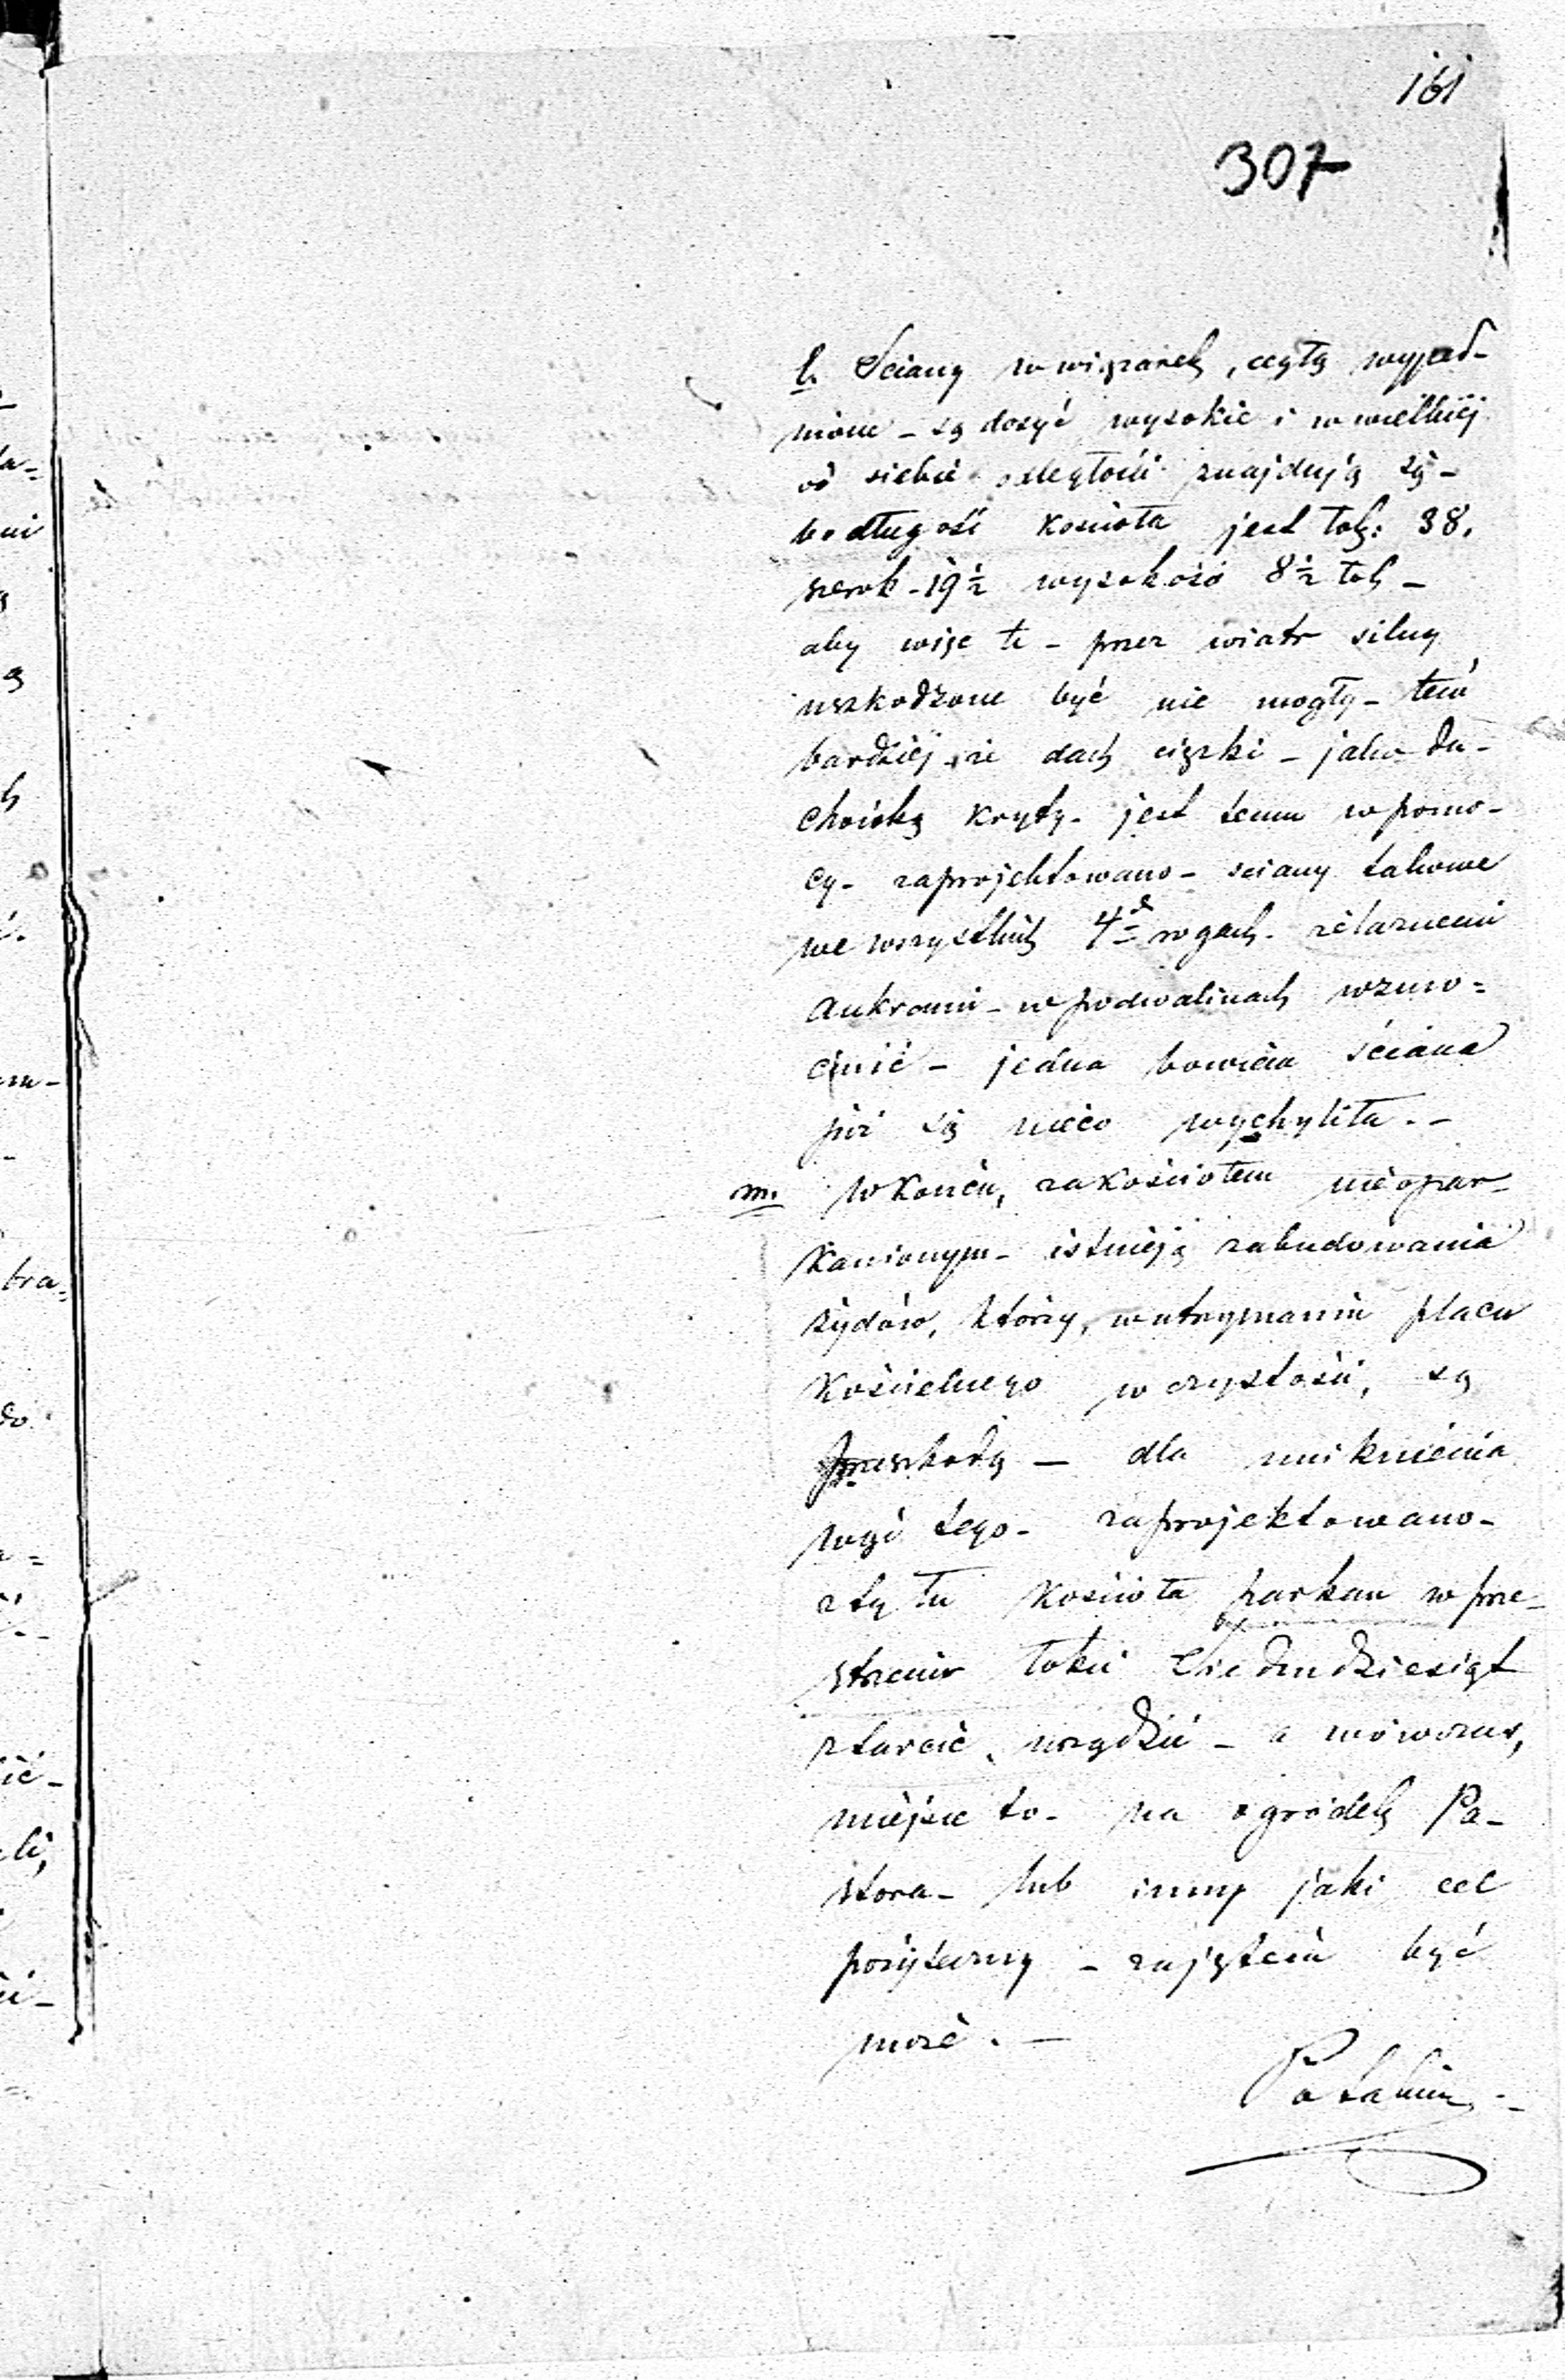 161
307
l. Sciany w wiązarek, cegłą wypeł-
nione – są dosyć wysokie i w wielkiéj
od siebie odległości znajdują są –
bo długość Kościoła jest łok: 38.
szerok – 19½ wysokość 8½ łok –
aby więc te – przez wiatr silny
uszkodzone być nie mogły – tem
bardziéj, że dach ciężki – jako da-
chówką kryty – jest temu w pomo-
cy – zaprojektowano – sciany takowe
we wszystkich 4ch rogach – żelaznemi
ankrami – w podwalinach wzmo=
cnić – jedna bowiem ściana
już są nieco wychyliła. –
m. W Końcu, za Kościołem nieopar-
kanionym – istnieją zabudowania
żydów, którzy, w utrzymaniu placu
Kościelnego w czystości, są
przeszkodą — dla uniknienia
więc tego – zaprojektowano –
z tyłu Kościoła parkan w prze-
strzeni łokci Siedmdziesiąt
z tarcic, urządzić – a wówczas,
miejsce to – na ogródek Pa-
stora – lub inny jaki cel
pożyteczny – zajętem być
może. —